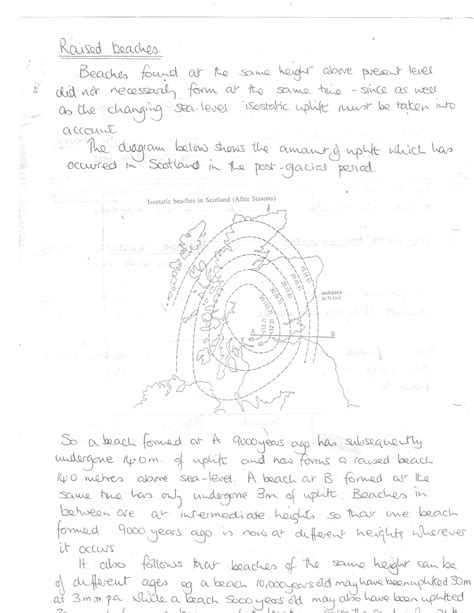 Raised beaches.
Beaches found at the same height above present level
did not necessarily form at the same time - since as well
as the changing sea-level isostatic uplift must be taken into
account.
The diagram below shows the amount of uplift which has
occurred in Scotland in the post-glacial period.
Isostatic beaches in Scotland (After Sissons)
A
B
So a beach formed at A 9000 years ago has subsequently
undergone 14.0m. of uplift and now forms a raised beach
14.0 metres above sea-level. A beach at B formed at the
same time has only undergone 3m. of uplift. Beaches in
between are at intermediate heights so that one beach
formed 9000 years ago is now at different heights wherever
it occurs
It also follows that beaches of the same height can be
of different ages eg a beach 10,000 years old may have been uplifted 30m
at 3m.m p.a while a beach 5000 years old may also have been uplifted